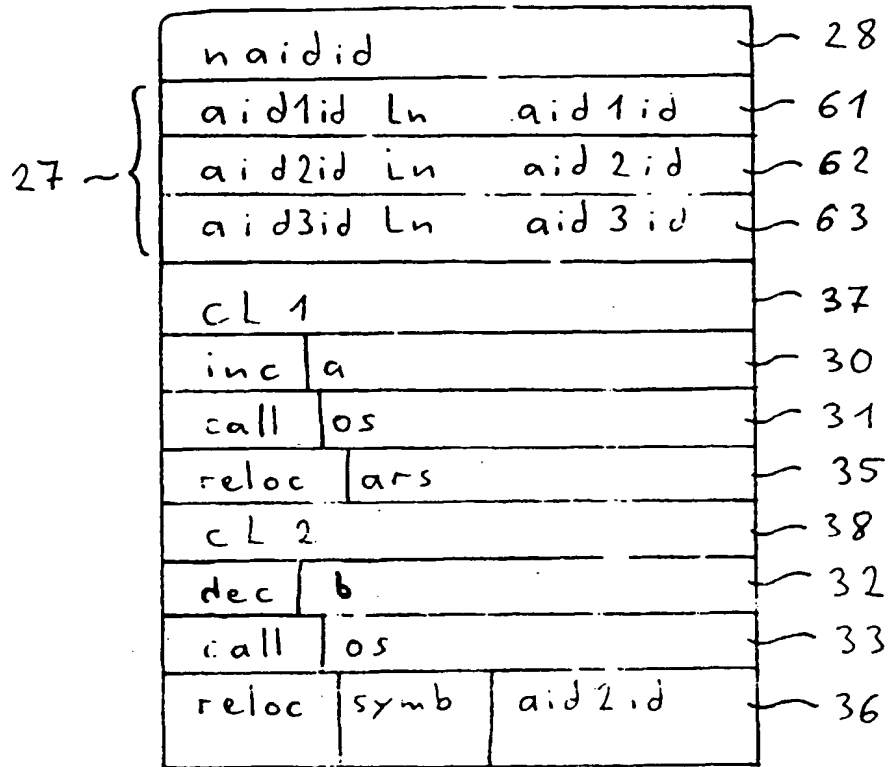 naidid 28
aid1id Ln aid1id 61
27 aid2id in aid2id 62
aid3id Ln aid3id 63
CL 1 37
inc a 30
call os 31
reloc ars 35
CL 2 38
dec b 32
call os 33
reloc symb aid2id 36